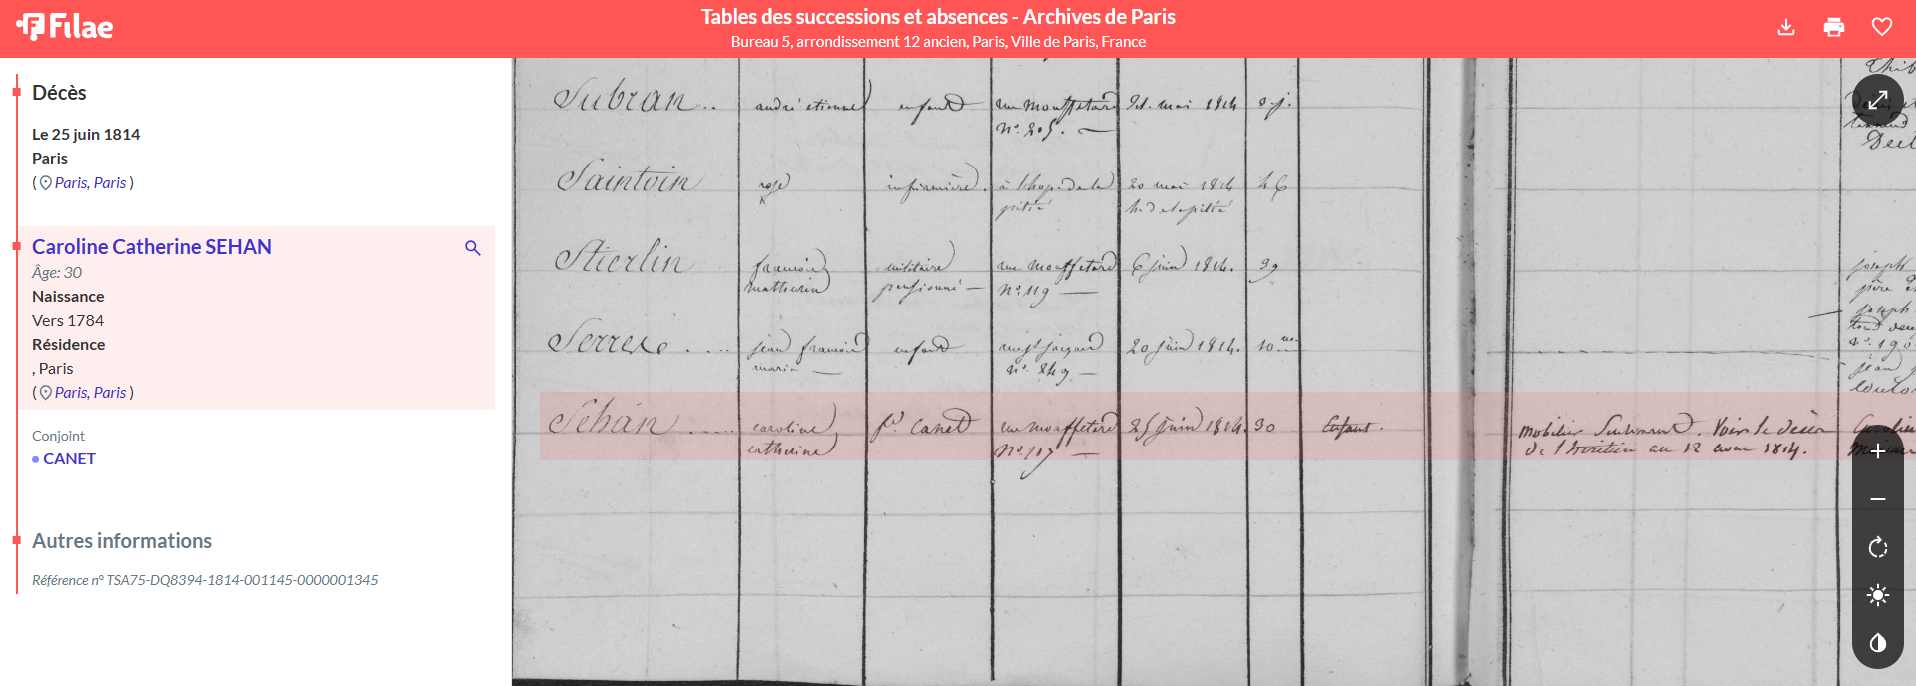 Filae
Tables des successions et absences - Archives de Paris
Bureau 5, arrondissement 12 ancien, Paris, Ville de Paris, France
Décès
Le 25 juin 1814
Paris
( Paris, Paris )
Caroline Catherine SEHAN
Âge: 30
Naissance
Vers 1784
Résidence
, Paris
( Paris, Paris )
Conjoint
CANET
Autres informations
Référence n° TSA75-DQ8394-1814-001145-0000001345
Subran .. andré etienne enfant rue mouffetard 21. mai 1814 8 j.
n.° 205.
Saintoin rose infirmière . à l'hop. de la 20 mai 1814 46
pitié h.d de la pitié
Stierlin francois militaire rue mouffetard 6 juin 1814. 39
mathurin pensionné n.° 119
Serrere . ... jean francois enfant rue St jacques 20 juin 1814. 10 ms.
marie n.° 249
Sehan ..... caroline fe. Canet rue mouffetard 25 juin 1814. 30 Enfant. mobilier Seulement. Voir le décès
catherine n.° 117 de l'héritier au 12 aout 1814.
joseph
père
joseph
n.° 190
jean